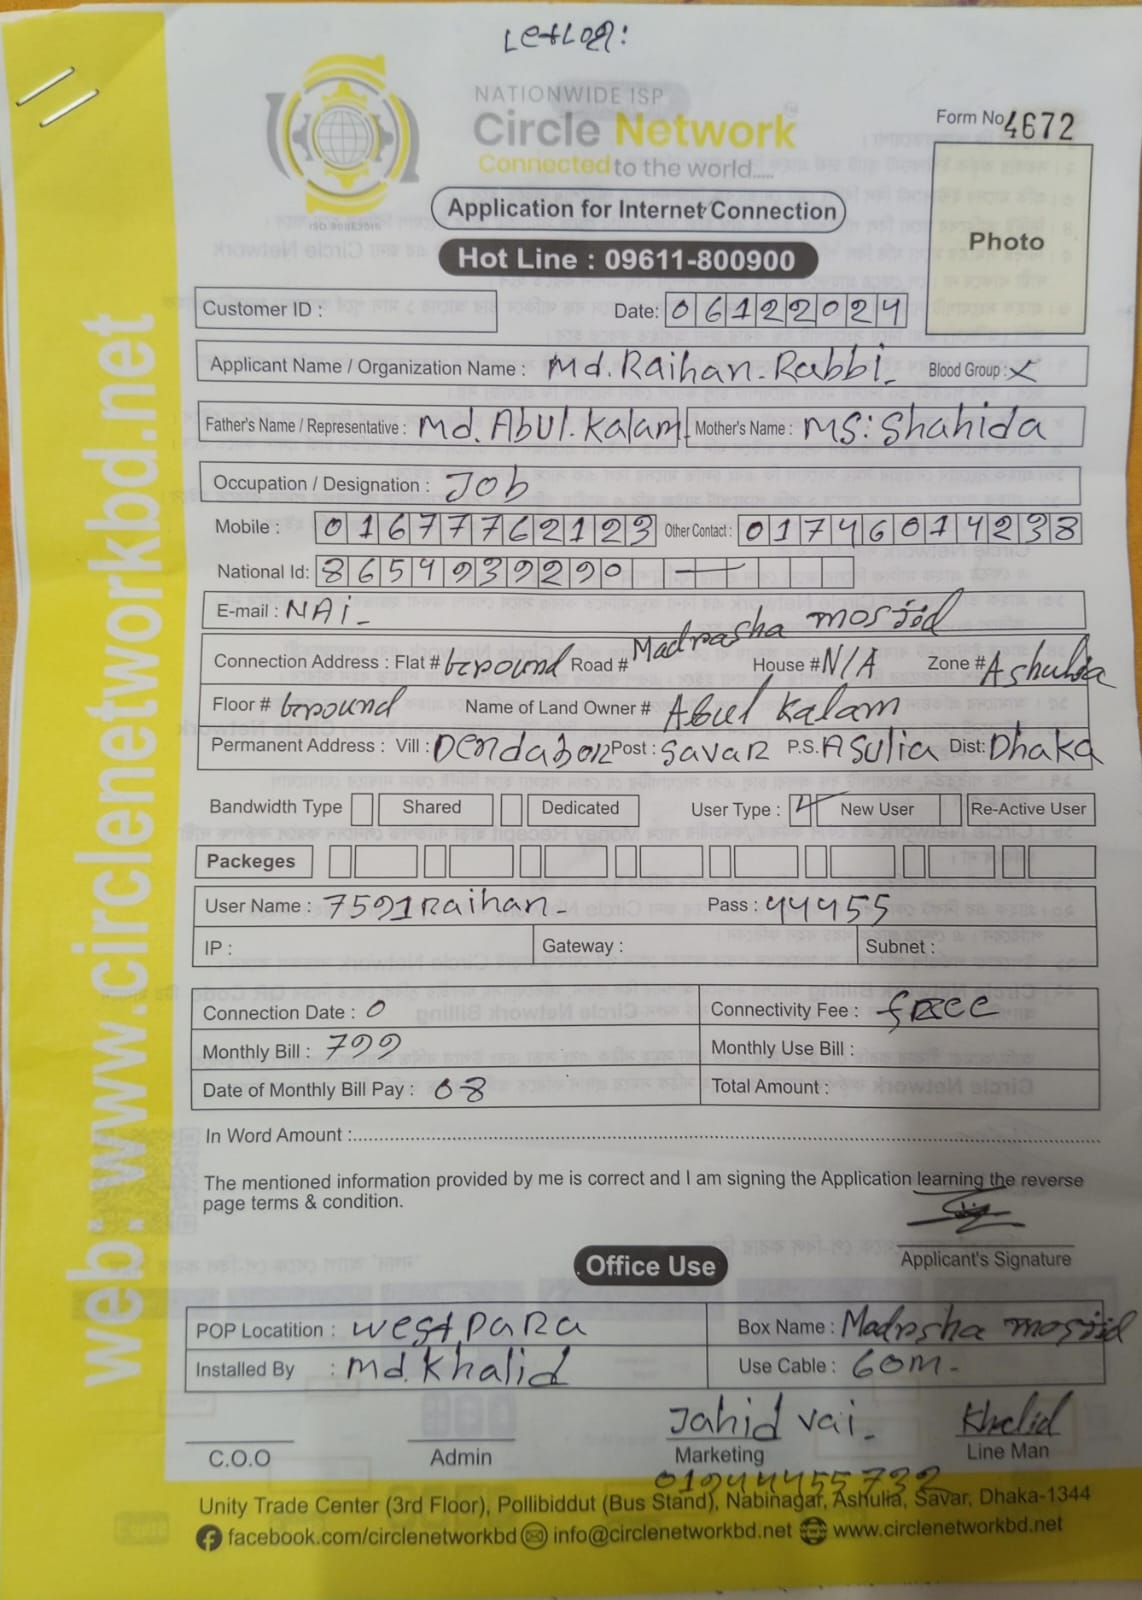 NATIONWIDE ISP
Circle Network
Connected to the world.....
ISO 9001:2015
Form No 4672
Photo
Application for Internet Connection
Hot Line : 09611-800900
Customer ID :
Date: 06122024
Applicant Name / Organization Name : Md. Raihan-Rabbi- Blood Group : X
Father's Name / Representative : Md. Abul. Kalam Mother's Name : MS: Shahida
Occupation / Designation : Job
Mobile : 01677762123 Other Contact : 01746014238
National Id: 8654939290
E-mail : NAi-
Connection Address : Flat # Ground Road # Madrasha mosjid House # N/A Zone # Ashulia
Floor # Ground Name of Land Owner # Abul Kalam
Permanent Address : Vill : Dendabor Post : Savar P.S. ASulia Dist: Dhaka
Bandwidth Type Shared Dedicated User Type : New User Re-Active User
Packeges
User Name : 7591Raihan- Pass : 44455
IP : Gateway : Subnet :
Connection Date : 0 Connectivity Fee : free
Monthly Bill : 799 Monthly Use Bill :
Date of Monthly Bill Pay : 08 Total Amount :
In Word Amount :
The mentioned information provided by me is correct and I am signing the Application learning the reverse
page terms & condition.
Applicant's Signature
Office Use
POP Locatition : West para Box Name : Madrsha mosjid
Installed By : Md. Khalid Use Cable : 60m-
Jahid vai- Khalid
C.O.O Admin Marketing Line Man
01944455732
Unity Trade Center (3rd Floor), Pollibiddut (Bus Stand), Nabinagar, Ashulia, Savar, Dhaka-1344
facebook.com/circlenetworkbd info@circlenetworkbd.net www.circlenetworkbd.net
web: www.circlenetworkbd.net